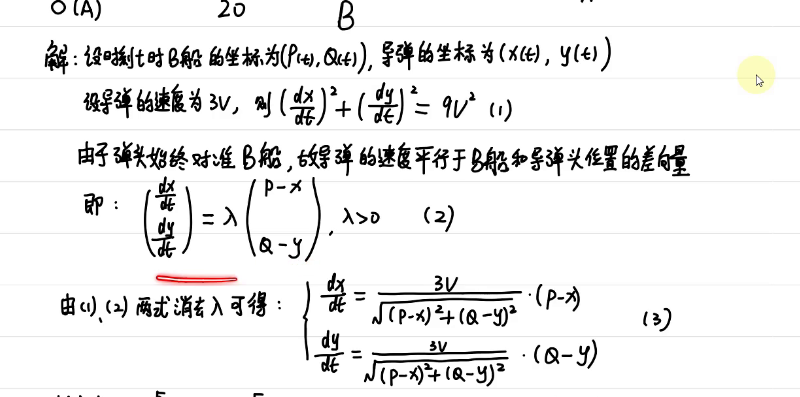 O(A) 20 B
解:设时刻t时B船的坐标为(P(t), Q(t)), 导弹的坐标为(x(t), y(t))
设导弹的速度为3V, 则 (dx/dt)² + (dy/dt)² = 9V² (1)
由于弹头始终对准B船,故导弹的速度平行于B船和导弹头位置的差向量
即: (dx/dt dy/dt) = λ (P-x Q-y), λ>0 (2)
由(1)、(2)两式消去λ可得: { dx/dt = 3V/√((P-x)²+(Q-y)²) · (P-x)
dy/dt = 3V/√((P-x)²+(Q-y)²) · (Q-y) (3)